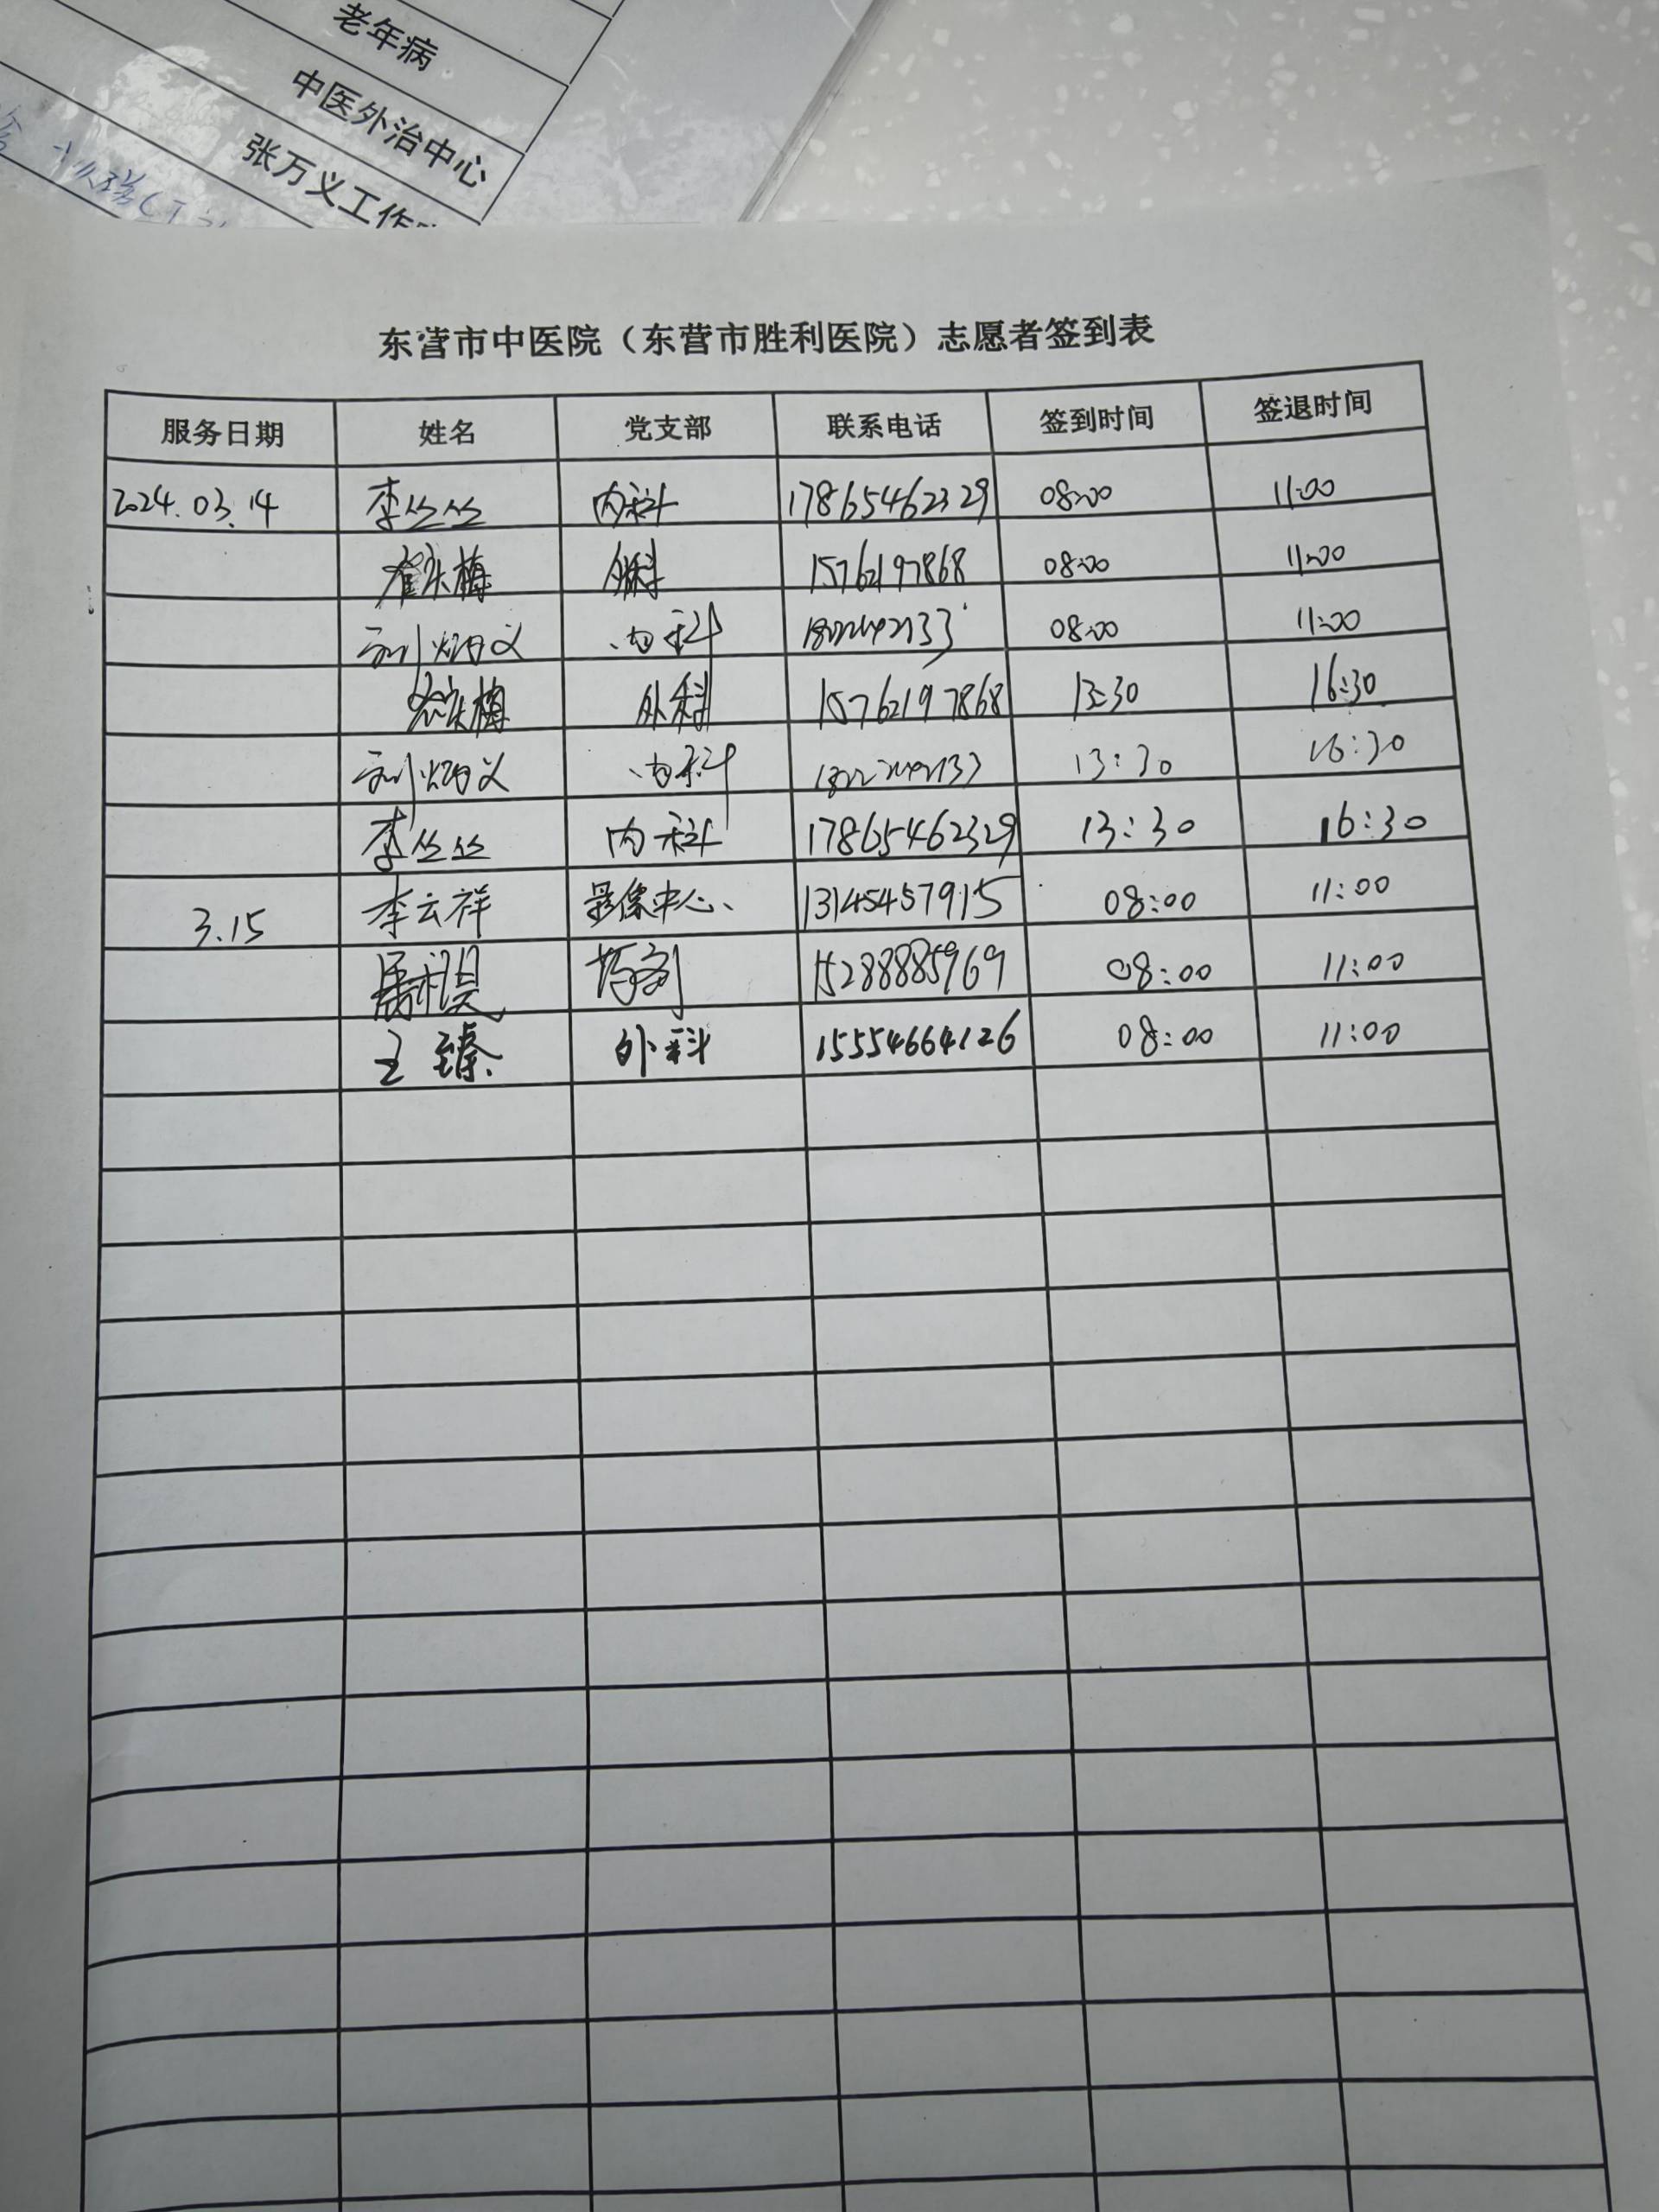 老年病
中医外治中心
张万义工作
东营市中医院（东营市胜利医院）志愿者签到表
服务日期 姓名 党支部 联系电话 签到时间 签退时间
2024.03.14 李丝丝 内科 17865462329 08:00 11:00
外科 15762197868 08:00 11:00
刘炳义 内科 08:00 11:00
外科 15762197868 13:30 16:30
刘炳义 内科 13:30 16:30
李丝丝 内科 17865462329 13:30 16:30
3.15 李云祥 影像中心、 13145457915 08:00 11:00
药剂 15288885969 08:00 11:00
王臻 外科 15554664126 08:00 11:00